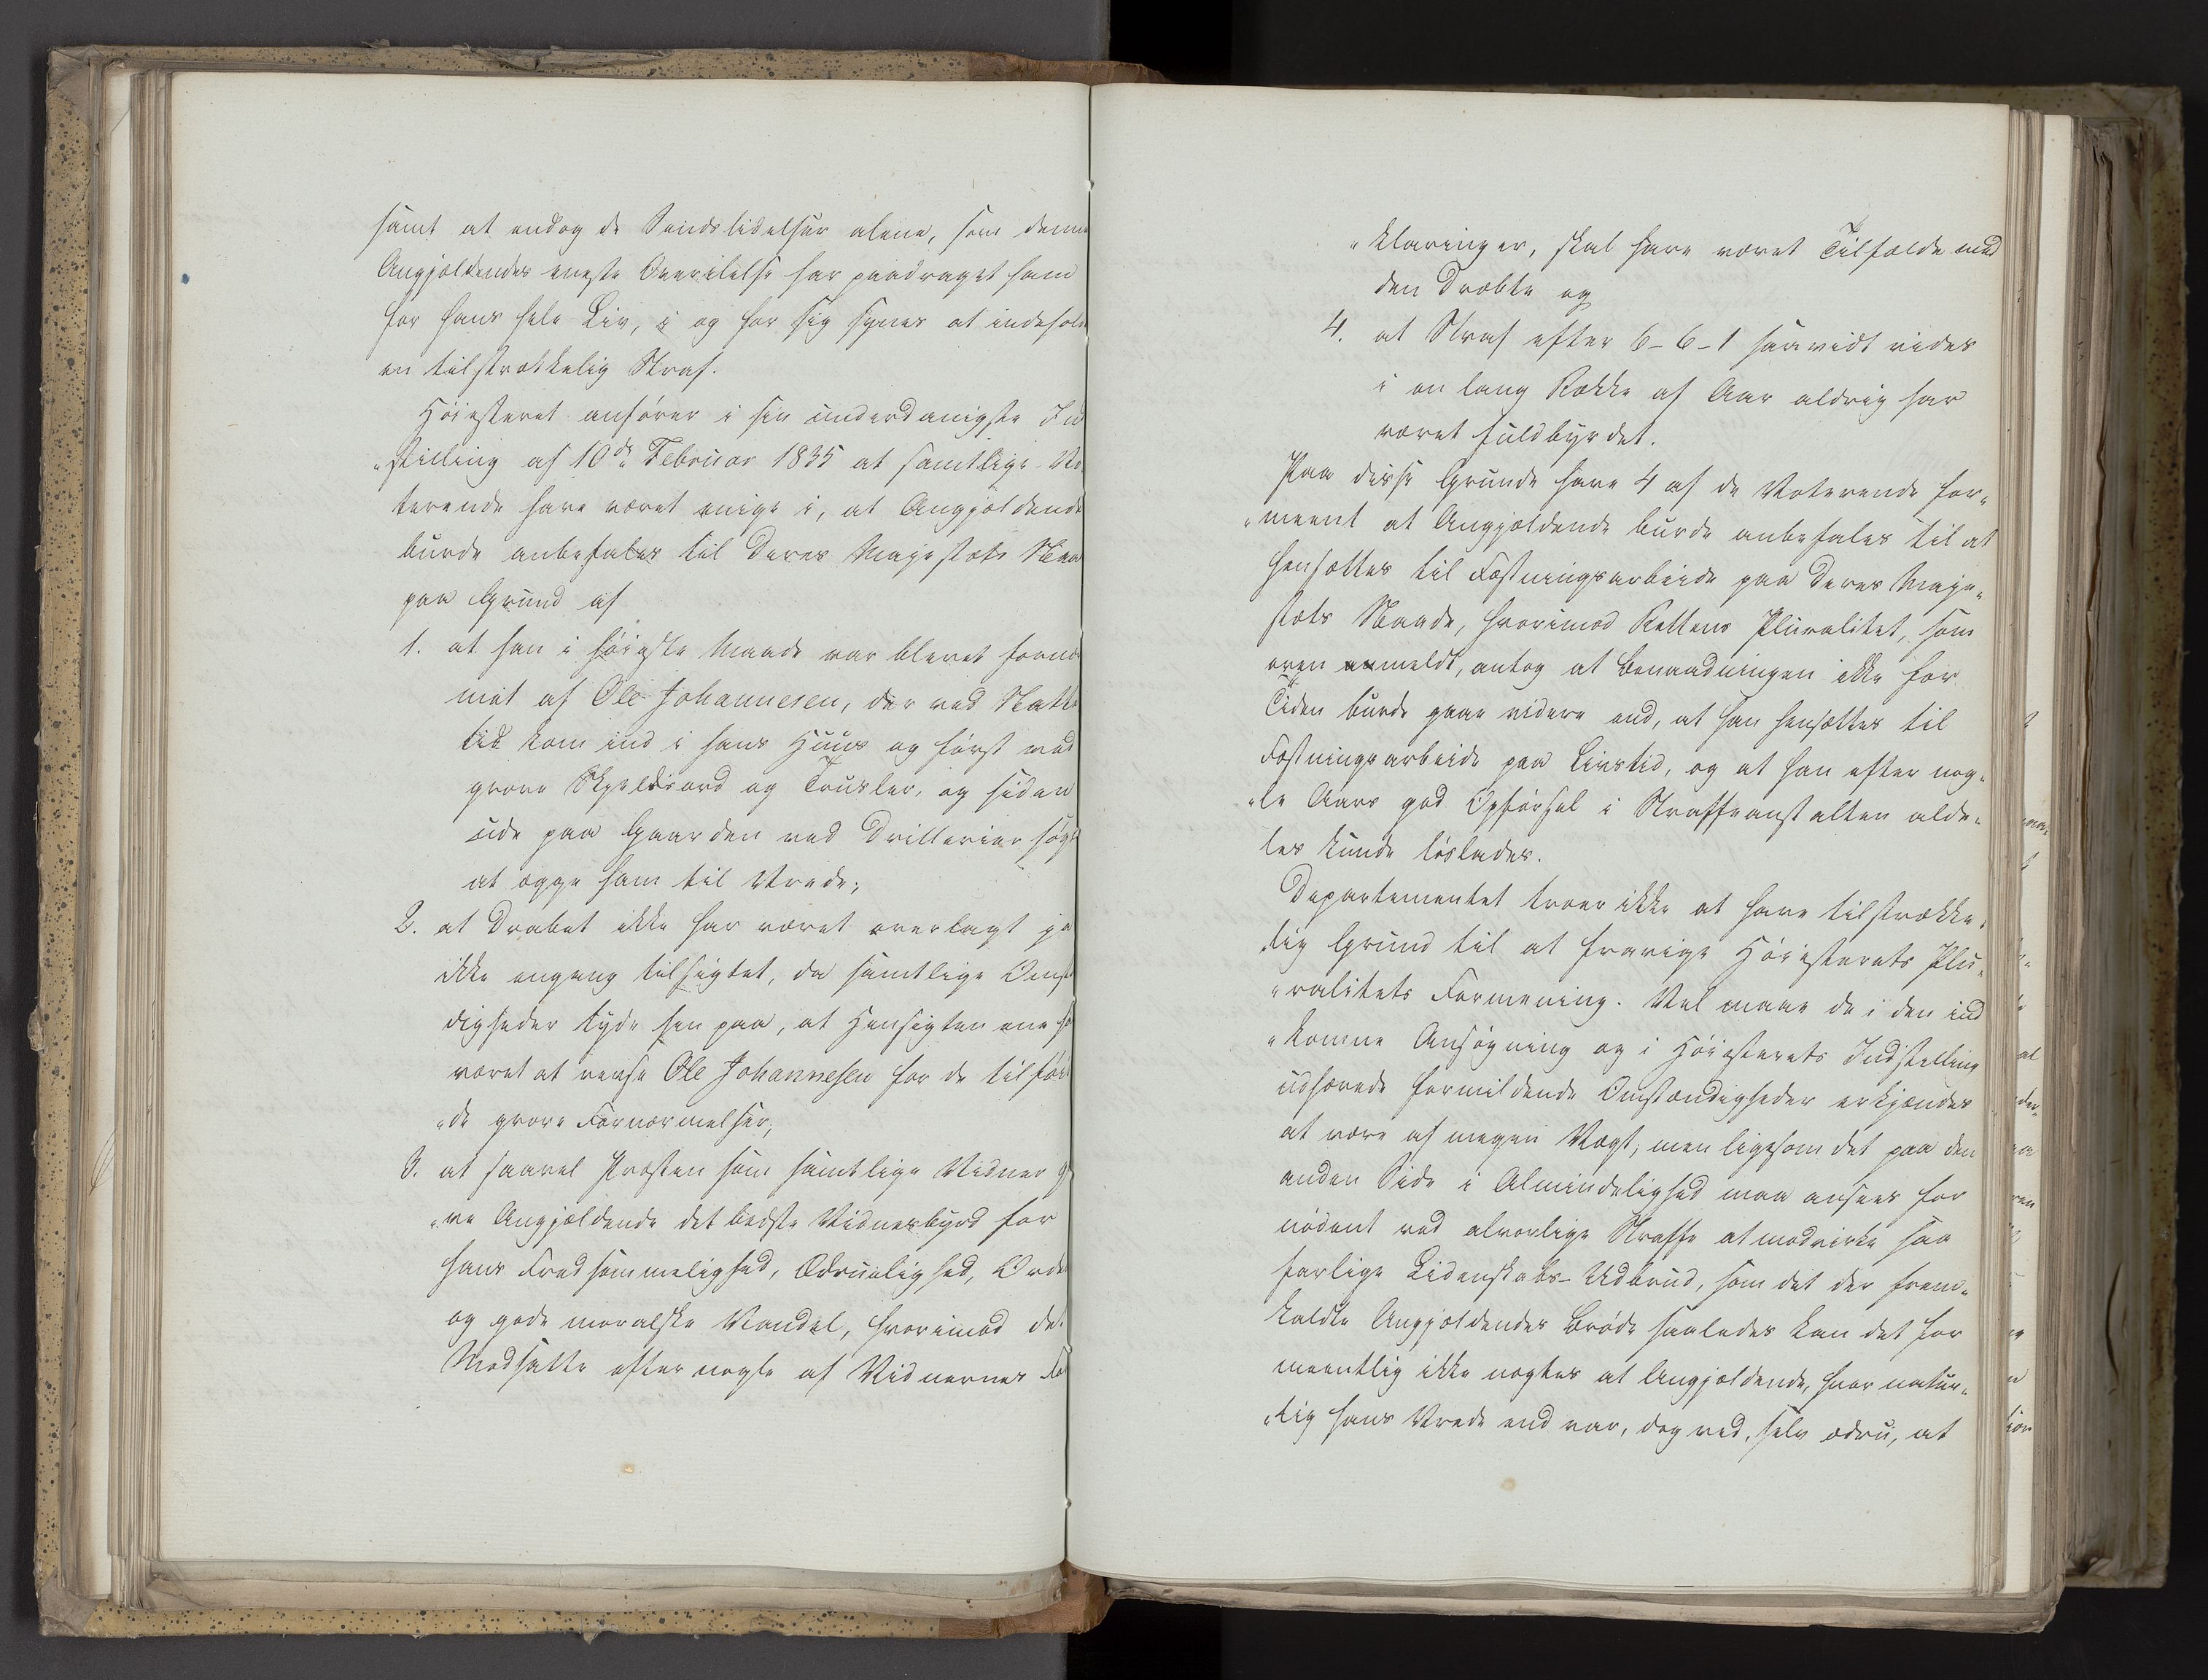 samt at endog de Sindslidelser alene, som denne
Angjældendes eneste Overilelse har paadraget ham
for hans hele Liv, i og for sig synes at indehold
en tilstrækkelig Straf.
Høiesteret anfører i sin underdanigste Ind
„stilling af 10de Februar 1835 at samtlige Vo
terende have været enige i, at Angjældende
burde anbefales til Deres Majestæts Naa
paa Grund af
1. at han i høieste Maade var blevet fornær
met af Ole Johannesen, der ved Natte
tid kom ind i hans Huus og først med
grove Skjeldsord og Trusler, og siden
ude paa Gaarden ved Drillerier søgt
at ægge ham til Vrede;
2. at Drabet ikke har været overlagt ja
ikke engang tilsigtet, da samtlige Omst
digheder tyde hen paa, at Hensigten ene ha
været at revse Ole Johannesen for de tilføi
„de grove Fornærmelser;
3. at saavel Præsten som samtlige Vidner gi
„ve Angjældende det bedste Vidnesbyrd for
hans Fredsommelighed, Ædruelighed, Orden
og gode moralske Vandel, hvorimod det
Modsatte efter nogle af Vidnernes For
„klaringer, skal have været Tilfælde med
den Dræbte og
4. at Straf efter 6-6-1 saavidt vides
i en lang Række af Aar aldrig har
været fuldbyrdet.
Paa disse Grunde have 4 af de Voterende for„
„meent at Angjældende burde anbefales til at
hensættes til Fæstningsarbeide paa Deres Maje„
stæts Naade, hvorimod Rettens Pluralitet, som
oven anmeldt, antog at Benaadningen ikke for
Tiden burde gaae videre end, at han hensættes til
Fæstningsarbeide paa Livstid, og at han efter nog„
„le Aars god Opførsel i Straffeanstalten alde„
les kunde løslades.
Departementet troer ikke at have tilstrække„
„lig Grund til at fravige Høiesterets Plu„
„ralitets Formening. Vel maae de i den ind
„komne Ansøgning og i Høiesterets Indstilling
udhævede formildende Omstændigheder erkjendes
at være af megen Vægt; men ligesom det paa den
anden Side i Almindelighed maa ansees for
nødent ved alvorlige Straffe at modvirke saa
farlige Lidenskabs-Udbrud, som det der frem„
kaldte Angjældendes Brøde saaledes kan det for
meentlig ikke nægtes at Angjældende, hvor natur„
„lig hans Vrede end var, dog ved, selv ædru, at